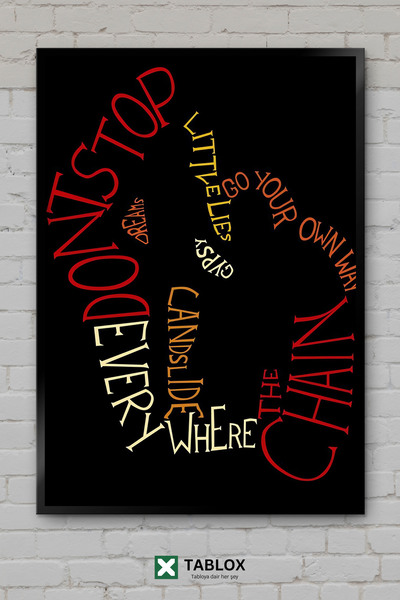 DONT STOP
DREAMS
LITTLE LIES
GO YOUR OWN WAY
GYPSY
LANDSLIDE
EVERYWHERE
THE
CHAIN
TABLOX
Tabloya dair her şey